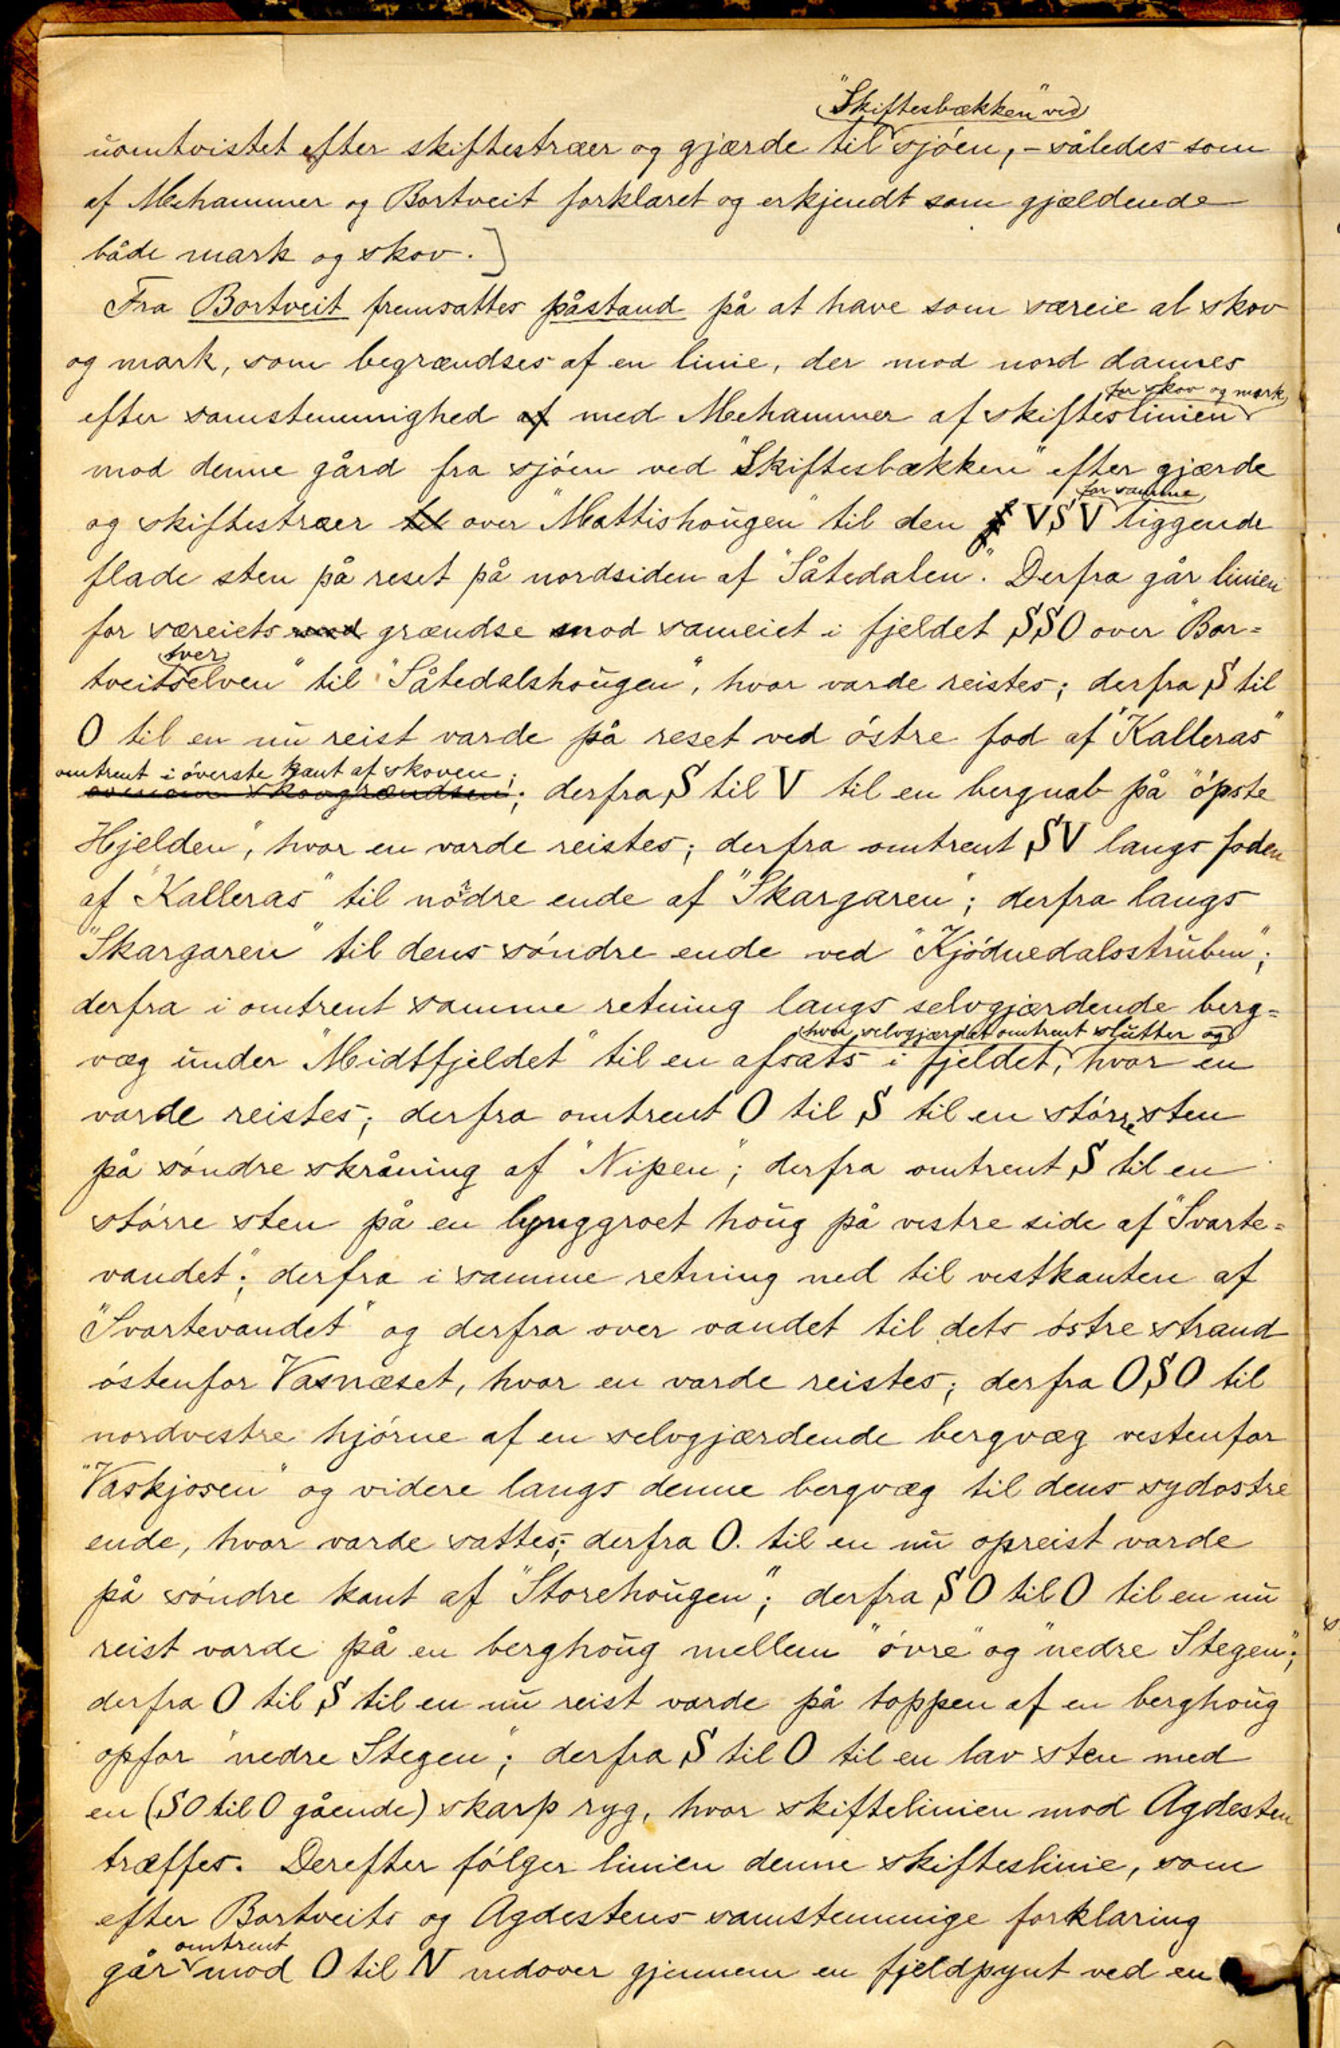 "Skiftesbækken" ved
uomtvistet efter skiftestræer og gjærde til sjóen, - således som
af Mehammer og Bortveit forklaret og erkjendt som gjældende
både mark og skov.]
Fra Bortveit fremsattes påstand på at have som særeie al skov
og mark, som begrændses af en linie, der mod nord dannes
for skov og mark
efter samstemmighed af med Mehammer af skifteslinien
mod denne gård fra sjóen ved "Skiftesbækken" efter gjærde
for samme
og skiftestræer til over "Mattishougen" til den VSV liggende
flade sten på reset på nordsiden af "Såtedalen". Derfra går linien
for særeiets mod grændse mod sameiet i fjeldet SSO over "Bor=
tver
tveitselven" til "Såtedalshougen", hvor varde reistes; derfra S til
O til en nu reist varde på reset ved óstre fod af "Kalleras"
omtrent i óverste kant af skoven;
ovenom skovgrændsen; derfra S til V til en bergnab på "ópste
Hjelden", hvor en varde reistes; derfra omtrent SV langs foden
af "Kalleras" til nórdre ende af "Skargaren"; derfra langs
"Skargaren" til dens sóndre ende ved "Kjódnedalsstruben";
derfra i omtrent samme retning langs selvgjærdende berg=
hvor selvgjærdet omtrent slutter og
væg under "Midtfjeldet" til en afsats i fjeldet, hvor en
varde reistes; derfra omtrent O til S til en stórre sten
på sóndre skråning af "Nipen"; derfra omtrent S til en
stórre sten på en lynggroet houg på vestre side af "Svarte=
vandet"; derfra i samme retning ned til vestkanten af
"Svartevandet" og derfra over vandet til dets óstre strand
óstenfor Vasnæset, hvor en varde reistes; derfra OSO til
nordvestre hjórne af en selvgjærdende bergvæg vestenfor
"Vaskjosen" og videre langs denne bergvæg til dens sydostre
ende, hvor varde sattes; derfra O. til en nu opreist varde
på sóndre kant af "Storehougen"; derfra SO til O til en nu
reist varde på en berghoug mellem "óvre" og "nedre Stegen";
derfra O til S til en nu reist varde på toppen af en berghoug
opfor "nedre Stegen"; derfra S til O til en lav sten med
en (SO til O gående) skarp ryg, hvor skiftelinien mod Agdesten
træffes. Derefter fólger linien denne skifteslinie, som
efter Bortveits og Agdestens samstemmige forklaring
omtrent
går mod O til N nedover gjennem en fjeldpynt ved en